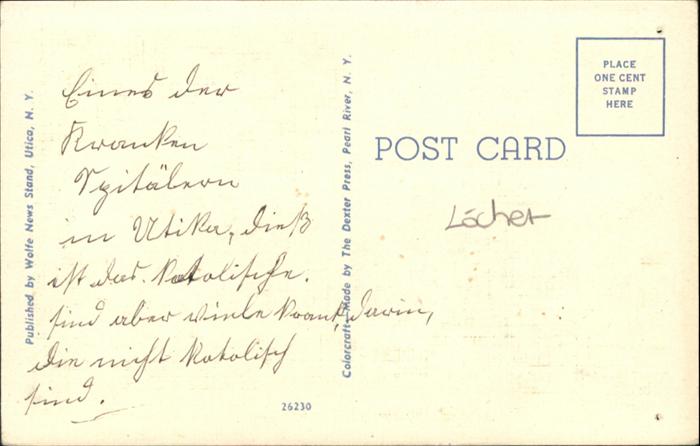 Eines der
Kranken
Spitälern
in Utika, dieß
ist das Katolische.
sind aber viele krank darin,
die nicht Katolisch
sind.
Published by Wolfe News Stand, Utica, N. Y.
Colorcraft—Made by The Dexter Press, Pearl River, N. Y.
26230
POST CARD
PLACE
ONE CENT
STAMP
HERE
Löcher